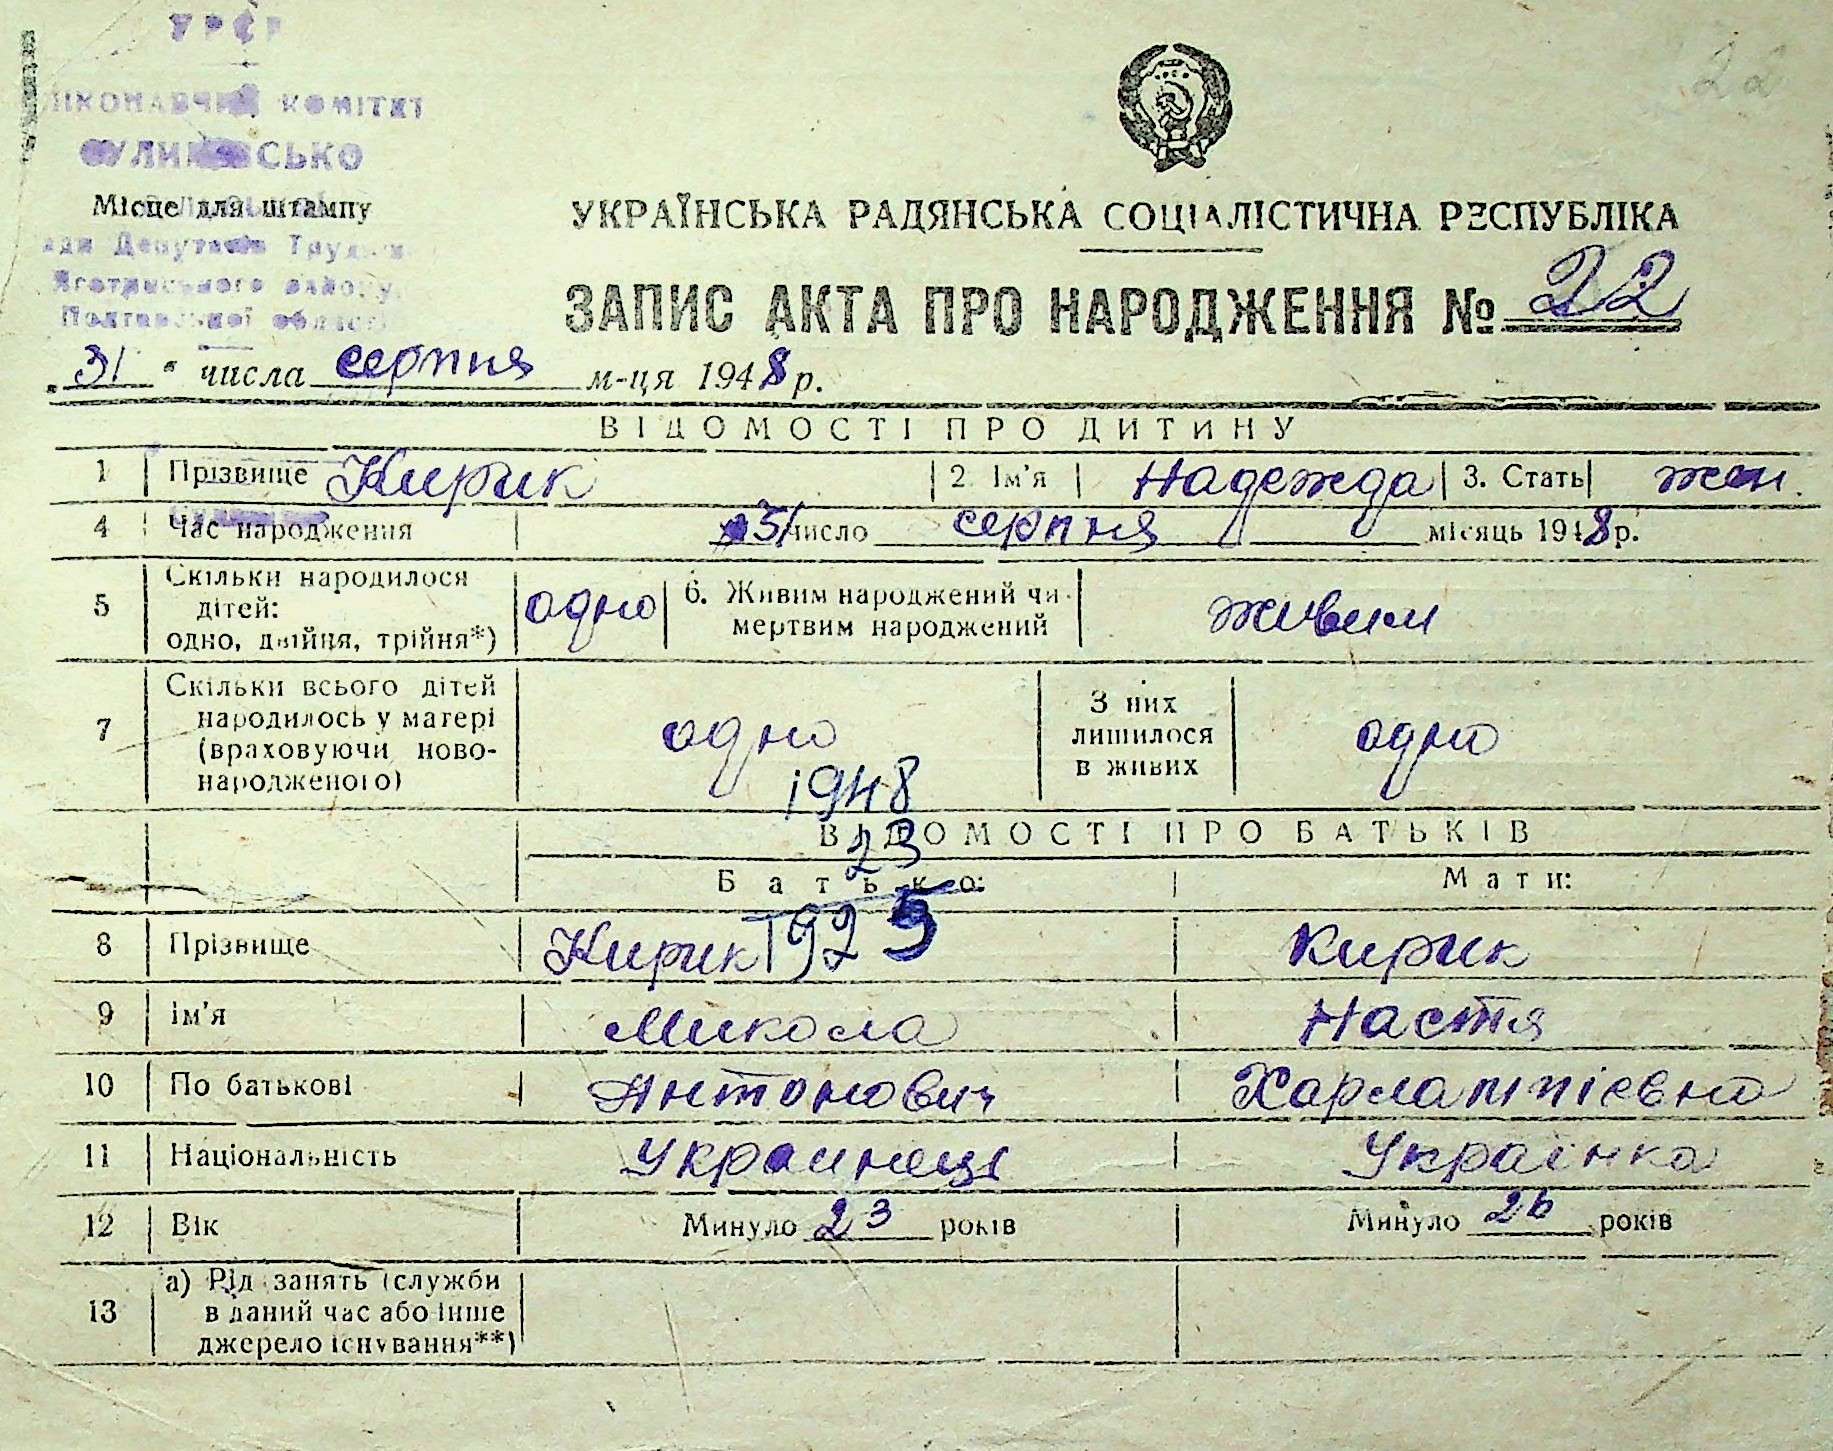 УРСР
КОМІТЕТ
22
Місце для штампу
Депутатів
Яготинського району,
Полтавської області
УКРАЇНСЬКА РАДЯНСЬКА СОЦІАЛІСТИЧНА РЕСПУБЛІКА
ЗАПИС АКТА ПРО НАРОДЖЕННЯ № 22
"31" числа серпня м-ця 1948 р.
ВІДОМОСТІ ПРО ДИТИНУ
1 Прізвище Кирик 2. Ім'я Надежда 3. Стать жен.
4 Час народження 31 число серпня місяць 1948 р.
5 Скільки народилося дітей: одно, двійня, трійня*) одно 6. Живим народжений чи мертвим народжений живим
7 Скільки всього дітей народилось у матері (враховуючи новонародженого) одно З них лишилося в живих одно
1948
ВІДОМОСТІ ПРО БАТЬКІВ
23
Батько: Мати:
1925
8 Прізвище Кирик Кирик
9 ім'я Микола Настя
10 По батькові Антонович Харлампієвна
11 Національність Украинець Українка
12 Вік Минуло 23 років Минуло 26 років
13 а) Рід занять (служби в даний час або інше джерело існування**)